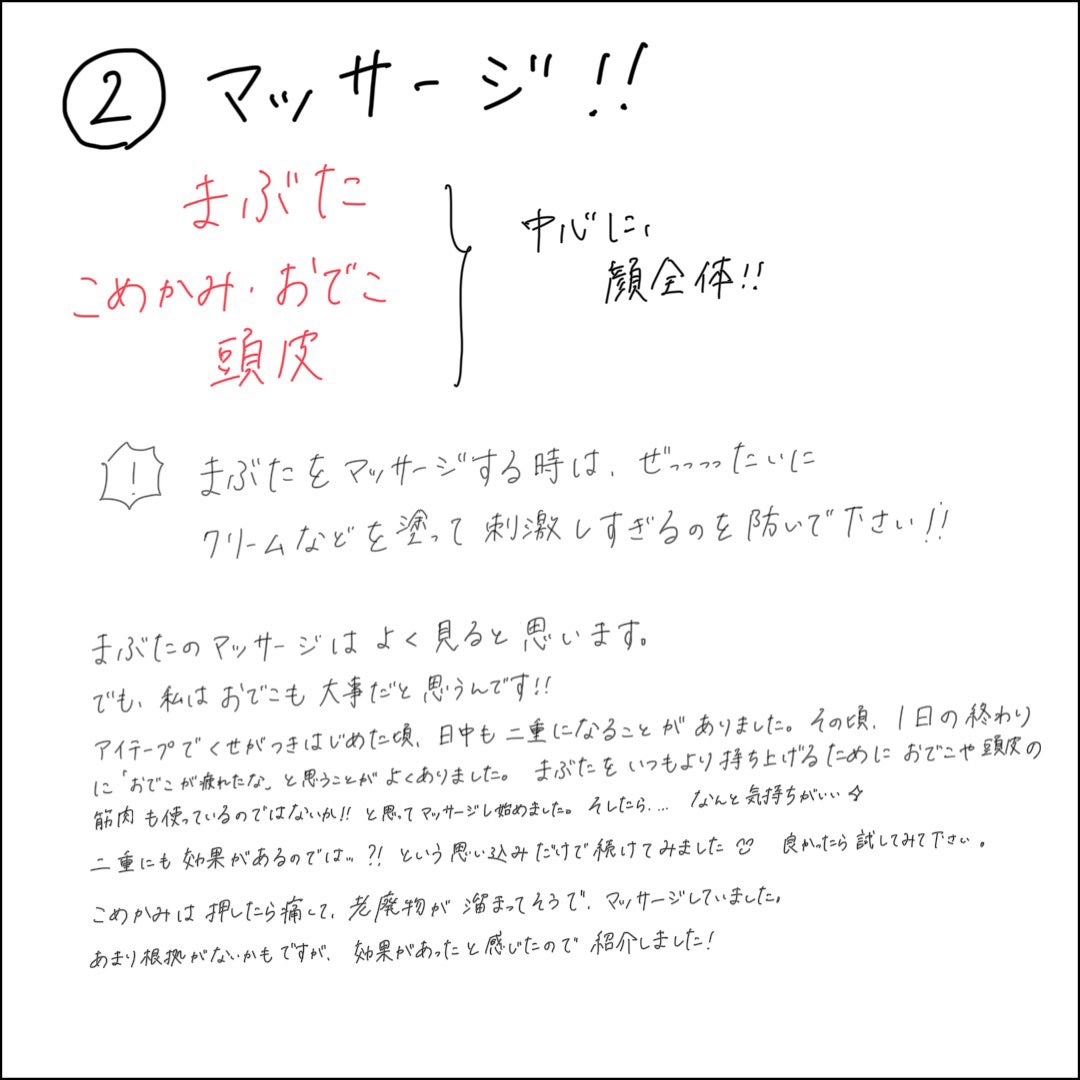 ② マッサージ!!
まぶた
こめかみ・おでこ
頭皮
中心に、
顔全体!!
! まぶたをマッサージする時は、ぜっっっったいに
クリームなどを塗って刺激しすぎるのを防いで下さい!!
まぶたのマッサージはよく見ると思います。
でも、私はおでこも大事だと思うんです!!
アイテープでくせがつきはじめた頃、日中も二重になることがありました。その頃、1日の終わり
に「おでこが疲れたな」と思うことがよくありました。まぶたをいつもより持ち上げるためにおでこや頭皮の
筋肉も使っているのではないか!!と思ってマッサージし始めました。そしたら.... なんと気持ちがいい☆
二重にも効果があるのでは...?!という思い込みだけで続けてみました☺ 良かったら試してみて下さい。
こめかみは押したら痛くて、老廃物が溜まってそうで、マッサージしていました。
あまり根拠がないかもですが、効果があったと感じたので紹介しました!